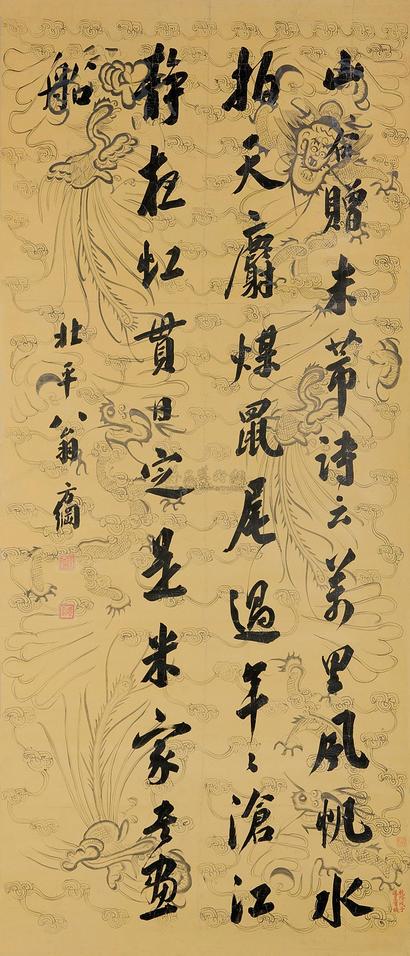 山谷贈米芾詩云萬里風帆水
拍天麝煤鼠尾過年〻滄江
靜夜虹貫月定是米家書畫
船
北平翁方綱